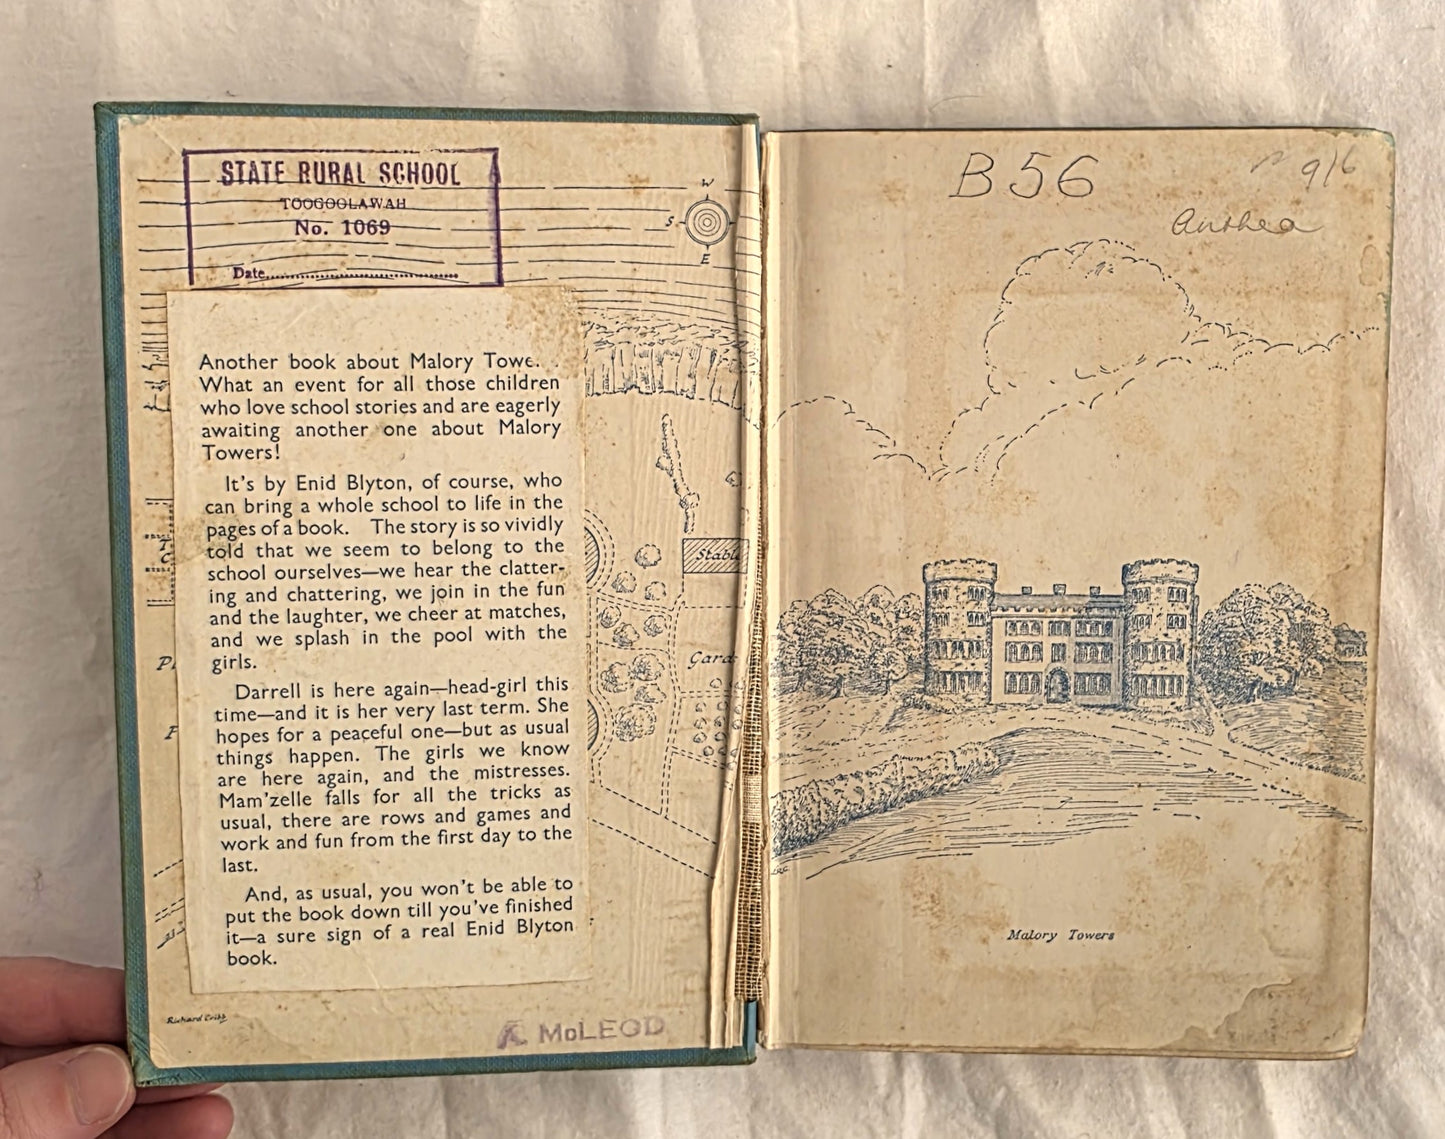 STATE RURAL SCHOOL
TOOGOOLAWAH
No. 1069
Date
W
S
E
Another book about Malory Towe
What an event for all those children
who love school stories and are eagerly
awaiting another one about Malory
Towers!
It's by Enid Blyton, of course, who
can bring a whole school to life in the
pages of a book. The story is so vividly
told that we seem to belong to the
school ourselves—we hear the clatter-
ing and chattering, we join in the fun
and the laughter, we cheer at matches,
and we splash in the pool with the
girls.
Darrell is here again—head-girl this
time—and it is her very last term. She
hopes for a peaceful one—but as usual
things happen. The girls we know
are here again, and the mistresses.
Mam'zelle falls for all the tricks as
usual, there are rows and games and
work and fun from the first day to the
last.
And, as usual, you won't be able to
put the book down till you've finished
it—a sure sign of a real Enid Blyton
book.
Stabl
Gard
Richard Cribb
A. McLEOD
B 56
9/6
Anthea
Malory Towers